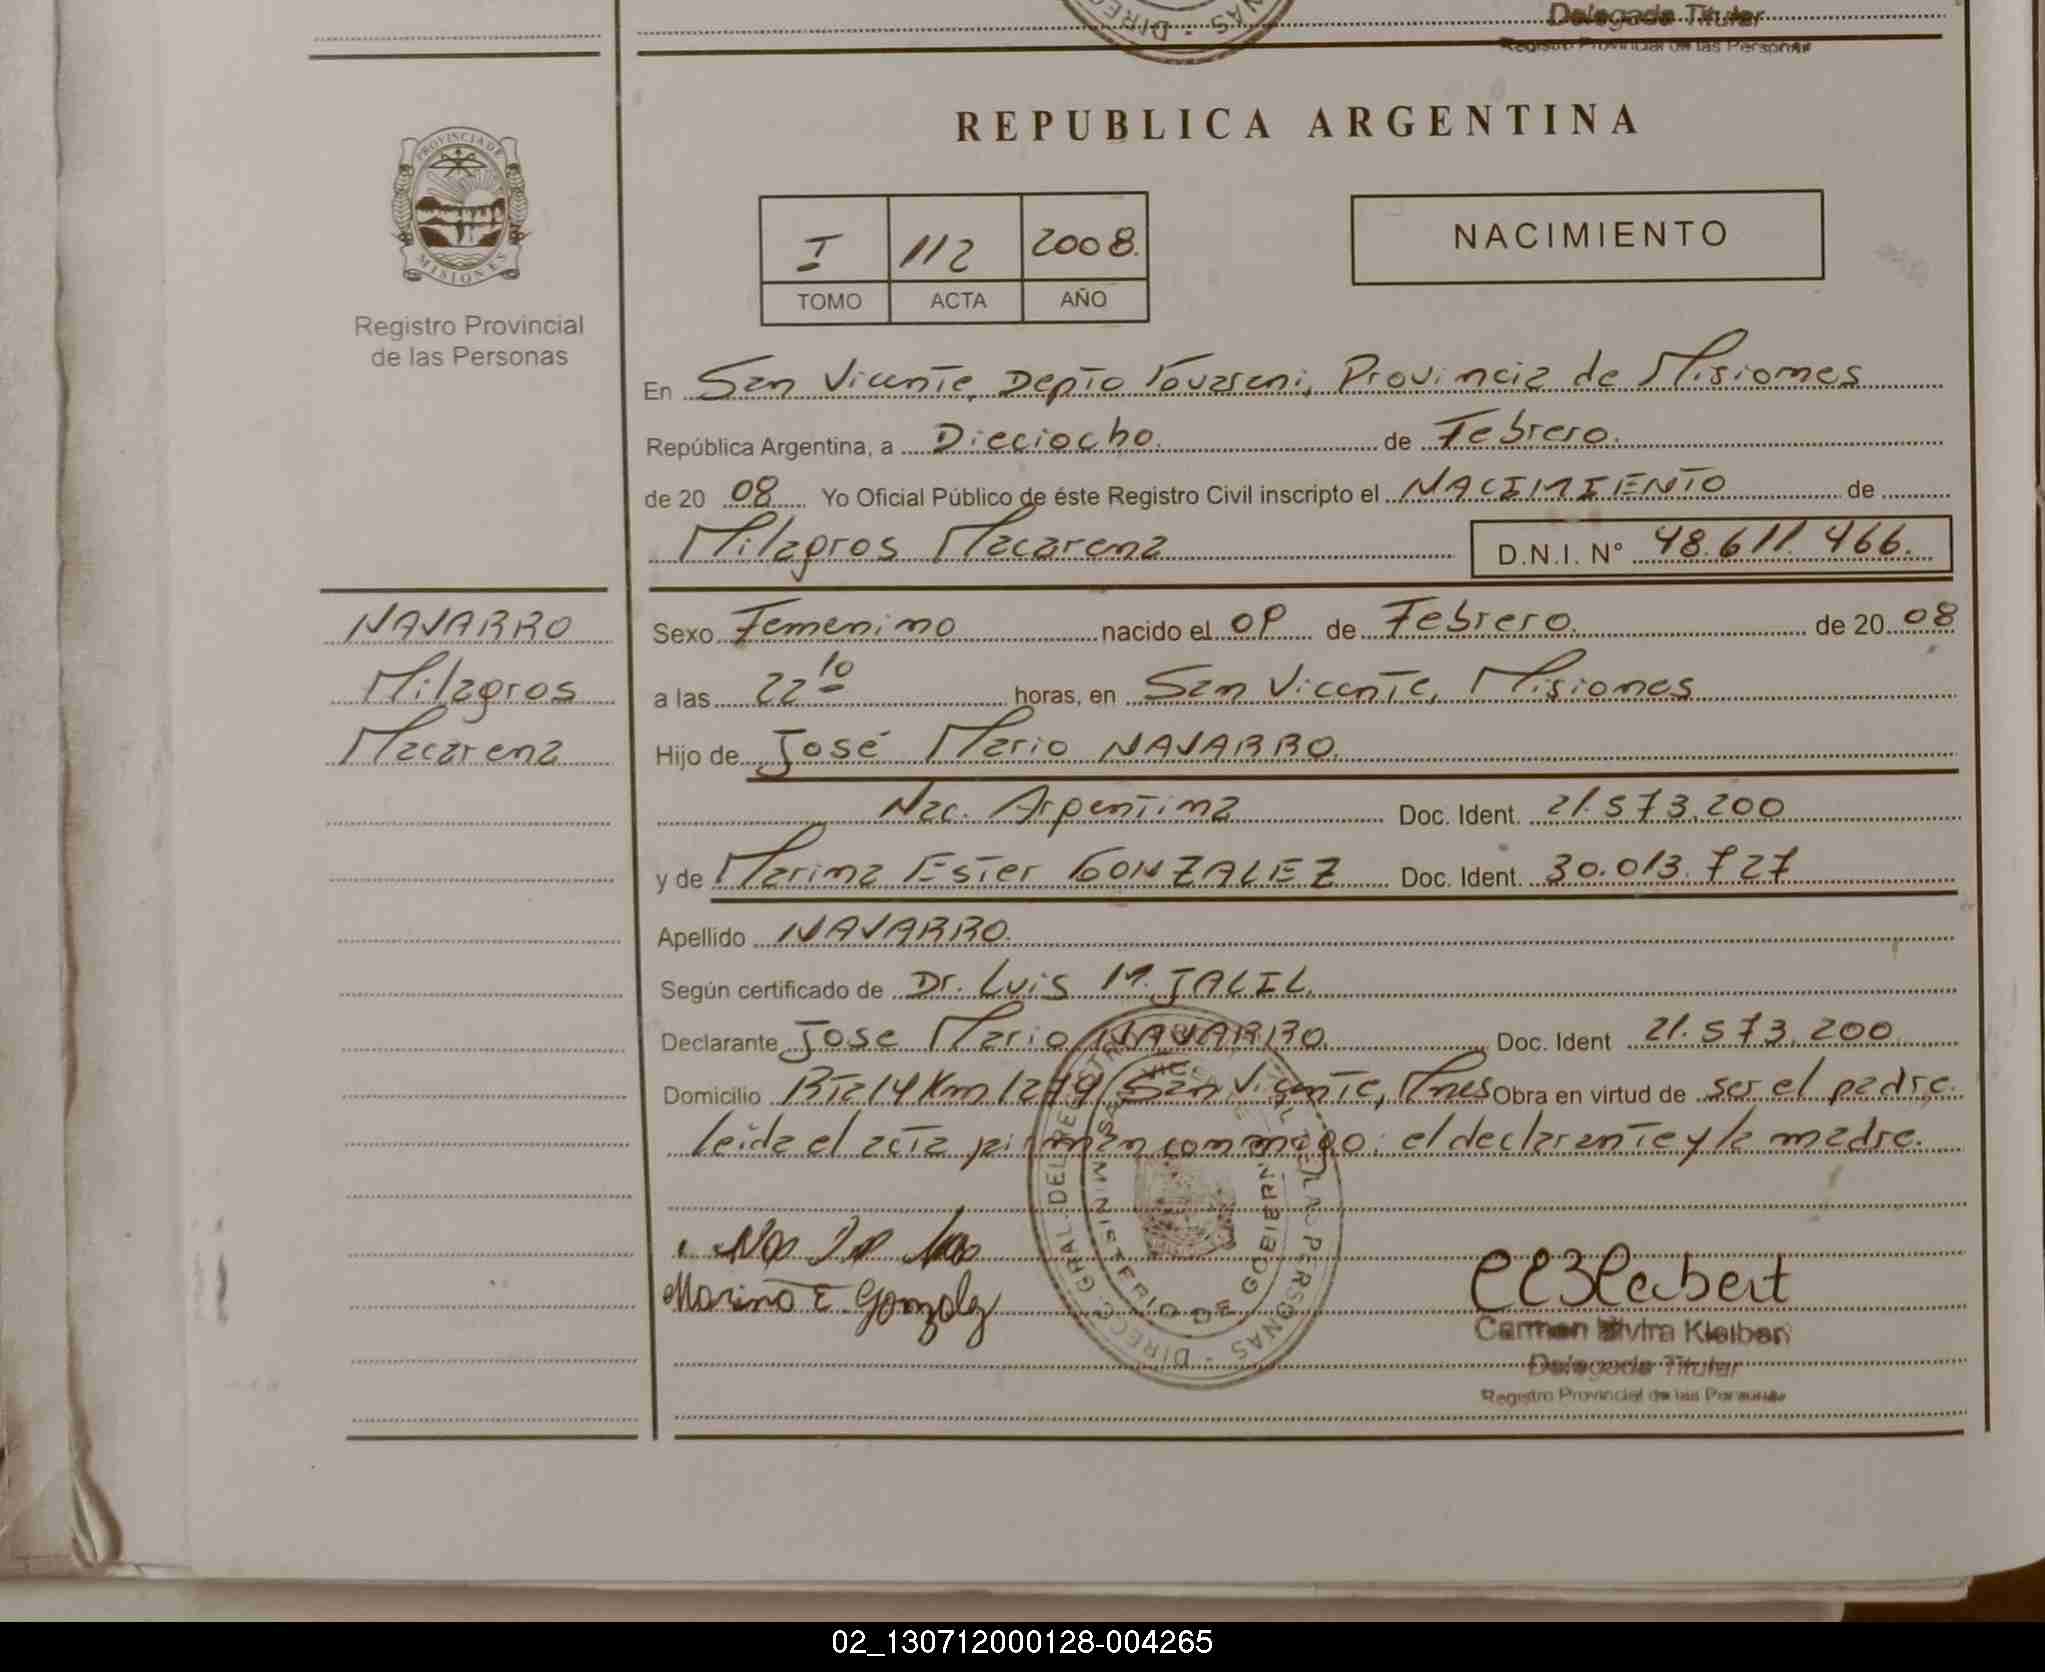 Delegada Titular
Registro Provincial de las Personas
PROVINCIA DE
MISIONES
Registro Provincial
de las Personas
REPUBLICA ARGENTINA
I 112 2008.
TOMO ACTA AÑO
NACIMIENTO
En San Vicente, Depto Guarani, Provincia de Misiones
República Argentina, a Dieciocho. de Febrero.
de 20 08 Yo Oficial Público de éste Registro Civil inscripto el NACIMIENTO de
Milagros Macarena D.N.I. N° 48.611.466.
NAVARRO
Milagros
Macarena
Sexo Femenino nacido el 09 de Febrero. de 20 08
a las 22 10 horas, en San Vicente, Misiones
Hijo de José Mario NAVARRO.
Nac. Argentina Doc. Ident. 21.573.200
y de Marina Ester GONZALEZ Doc. Ident. 30.013.727
Apellido NAVARRO.
Según certificado de Dr. Luis M. JALIL.
Declarante Jose Mario NAVARRO Doc. Ident 21.573.200
Domicilio Rta 14 Km 1279 San Vicente, Mnes Obra en virtud de ser el padre.
Leida el acta firman conmigo: el declarante y la madre.
Marina E. Gonzalez
MINISTERIO DE GOBIERNO
Carmen Elvira Kleibert
Delegada Titular
Registro Provincial de las Personas
02_130712000128-004265